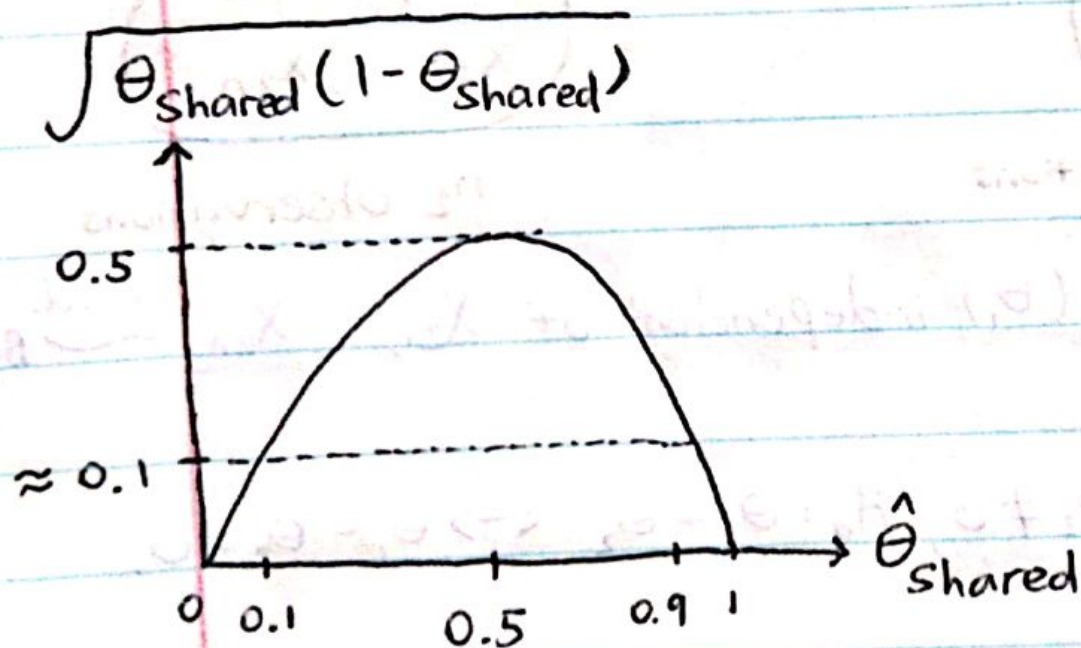 √θ_shared (1 - θ_shared)
0.5
≈ 0.1
0 0.1 0.5 0.9 1
θ̂_shared